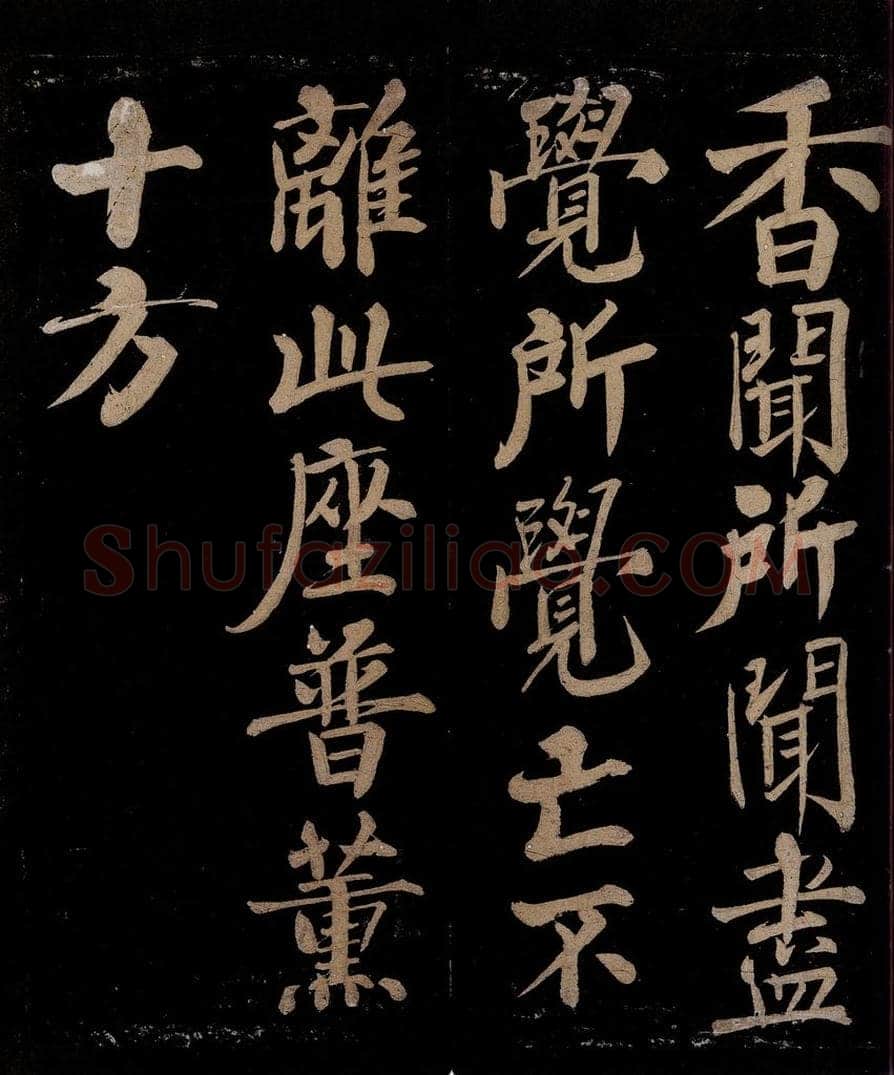 香聞所聞盡
覺所覺亡不
離此座普薰
十方
Shufaziliao.COM